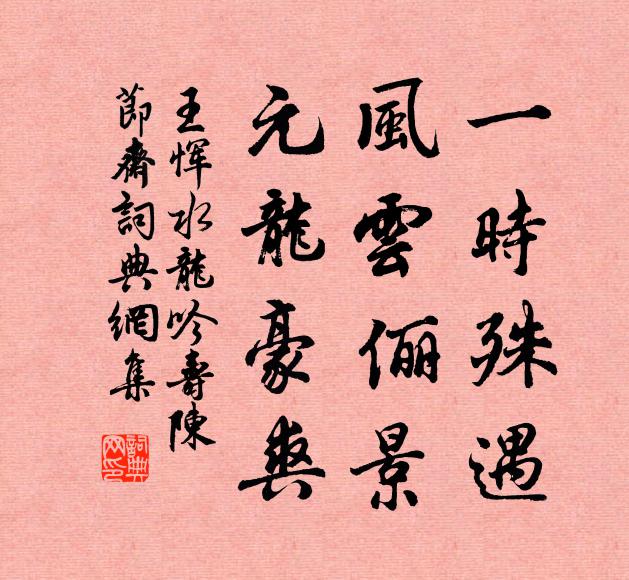 一時殊遇
風雲儷景
元龍豪爽
王惲水龍吟壽陳
節齋詞典網集
詞典网印